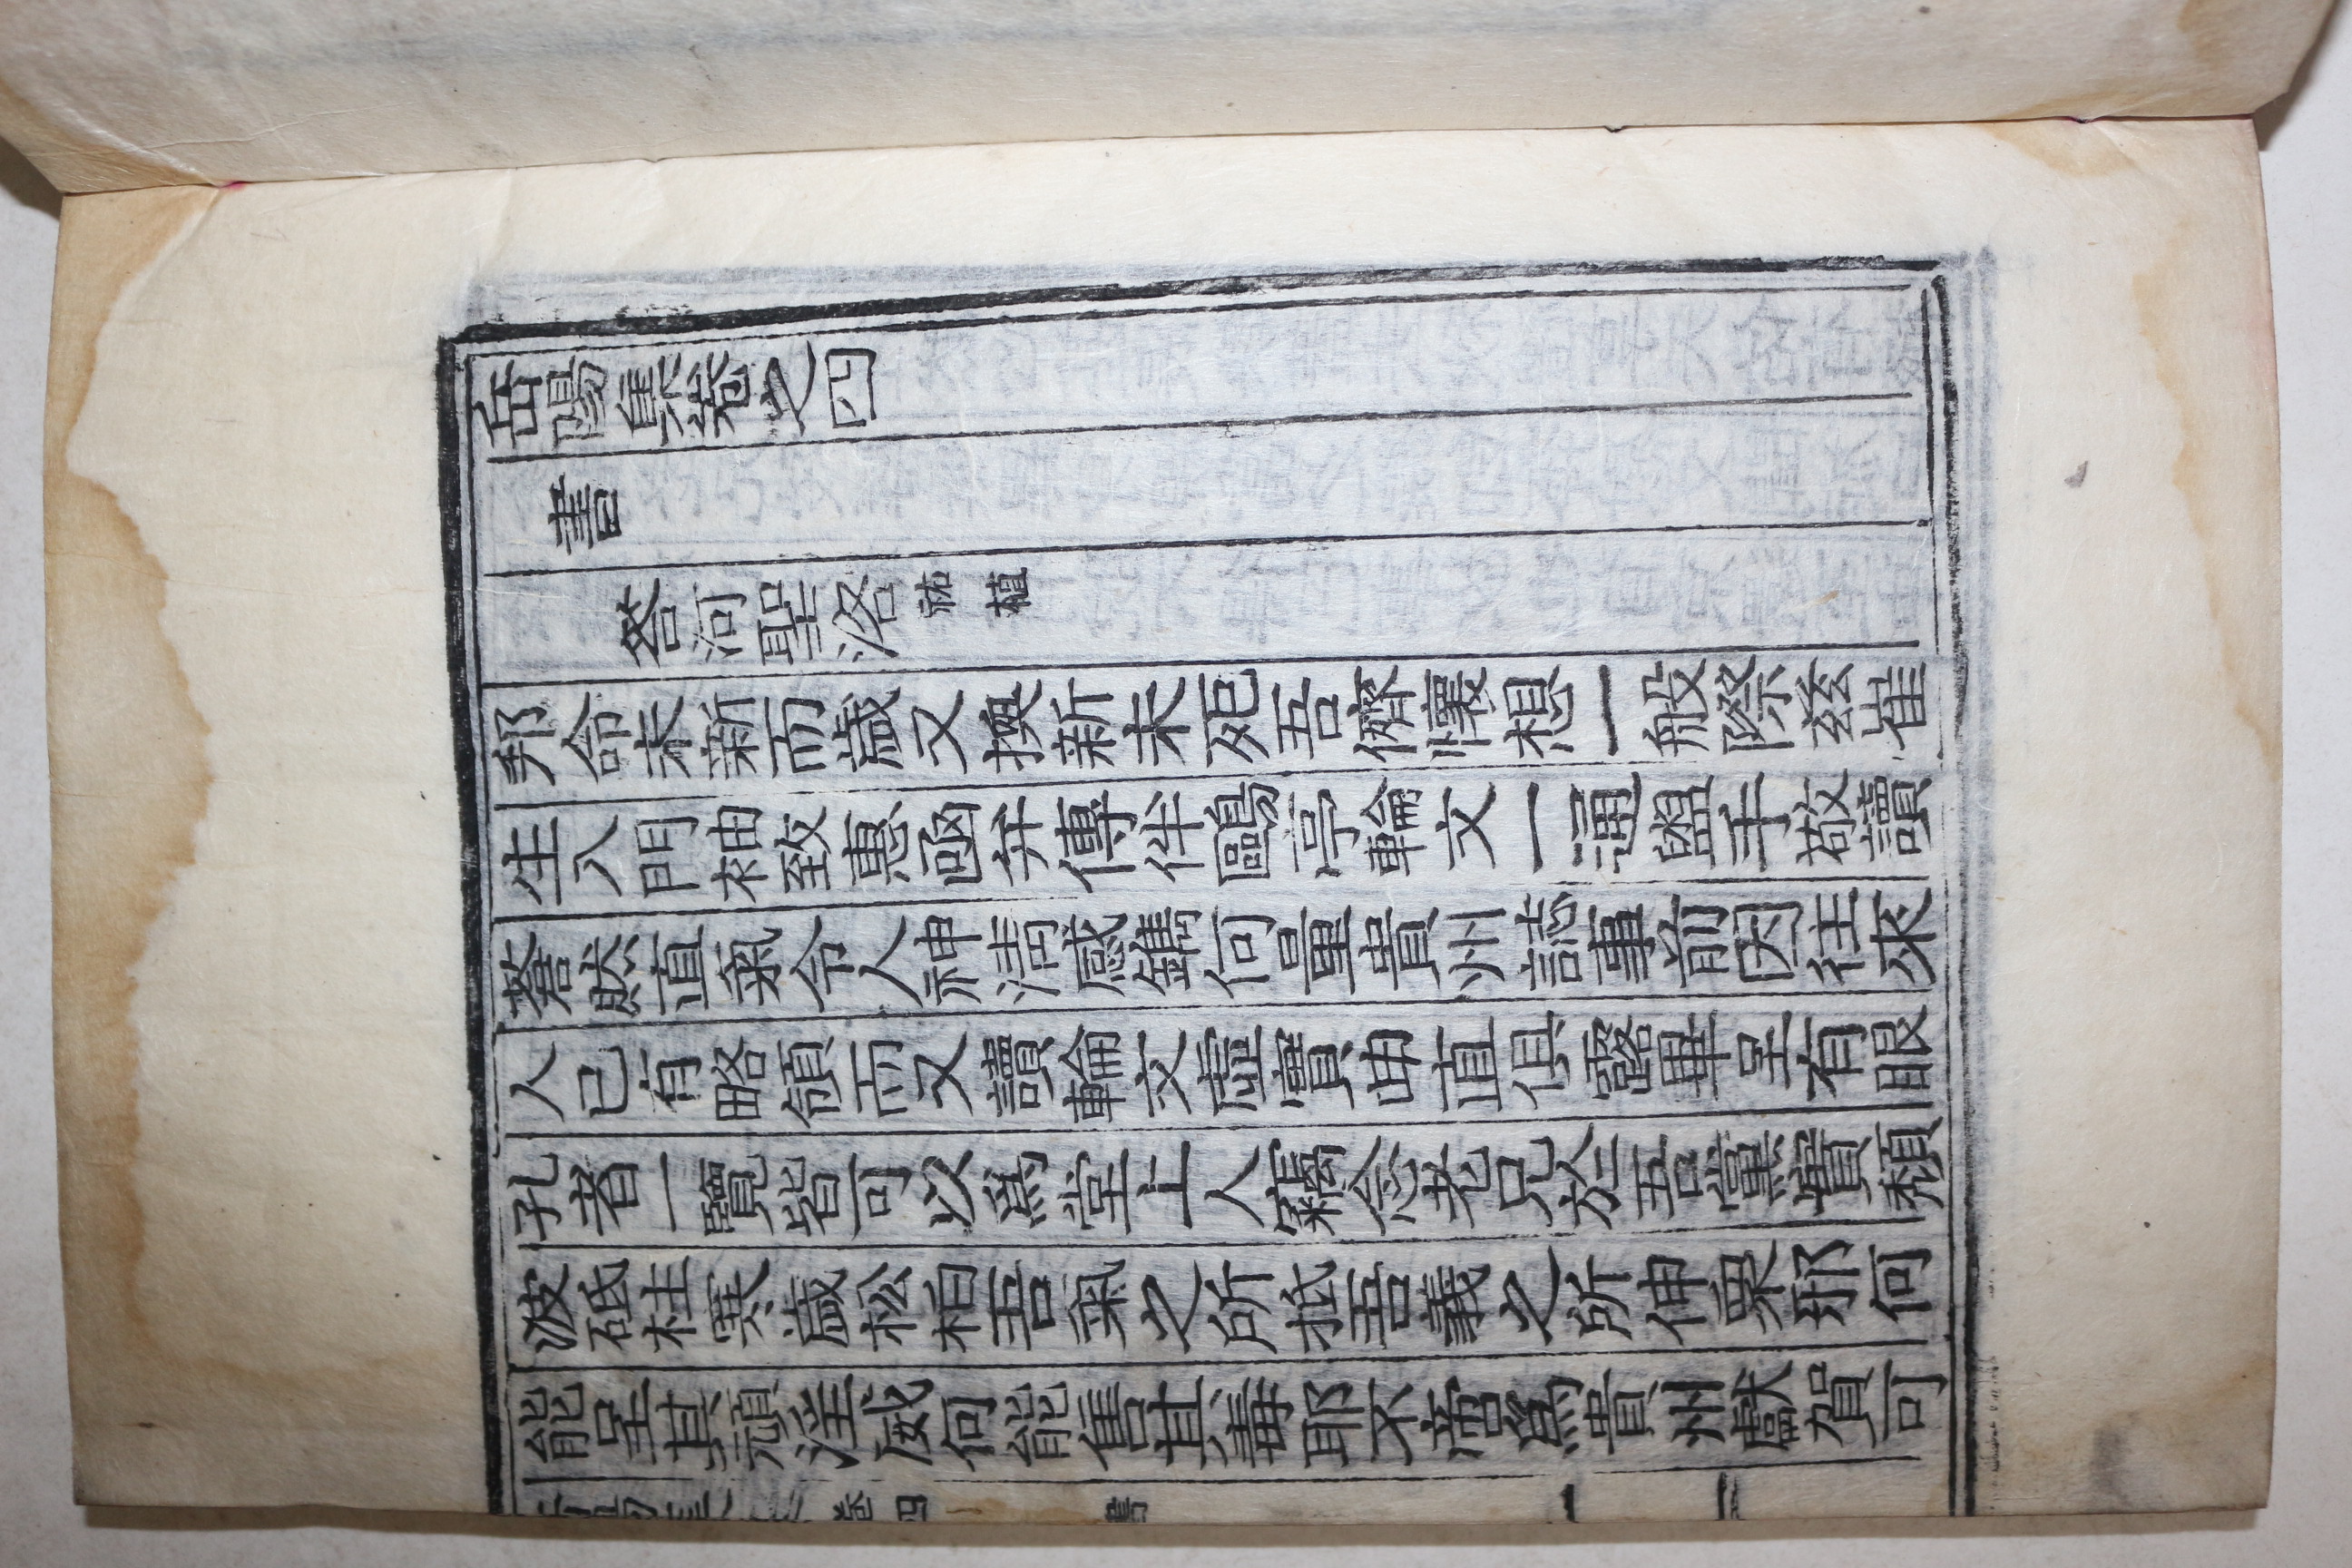 岳陽集卷之四
書
答河聖洛祐植
邦命未新而歲又換新未死吾儕懷想一般際玆崔
生入門袖致惠函弁傳伴鷗亭輪文一通盥手敬讀
蒼然直氣令人神淸感鐫何量貴州誌事前因往來
人已有略領而又讀輪文虛實曲直俱露畢呈有眼
孔者一覽皆可以爲堂上人竊念老兄於吾黨實頹
波砥柱寒歲松柏吾氣之所抵吾義之所伸衆邪何
能呈其頑淫威何能售其毒耶不啻爲貴州獻賀可
卷四
書
一